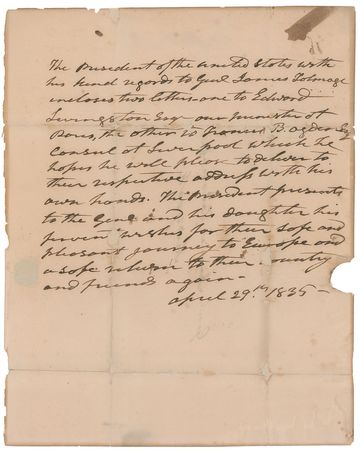 The President of the united States with
his kind regards to Genl James Tolmage
incloses two letters one to Edward
Livingston Esqr our minister at
Paris, the other to Francis B. Ogden Esqr
Consul at Liverpool which he
hopes he will please to deliver to
their respective address with his
own hands. The President presents
to the Genl and his daughter his
wishes for their safe and
pleasant journey to Europe and
a safe return to their country
and friends again—
april 29th 1835—